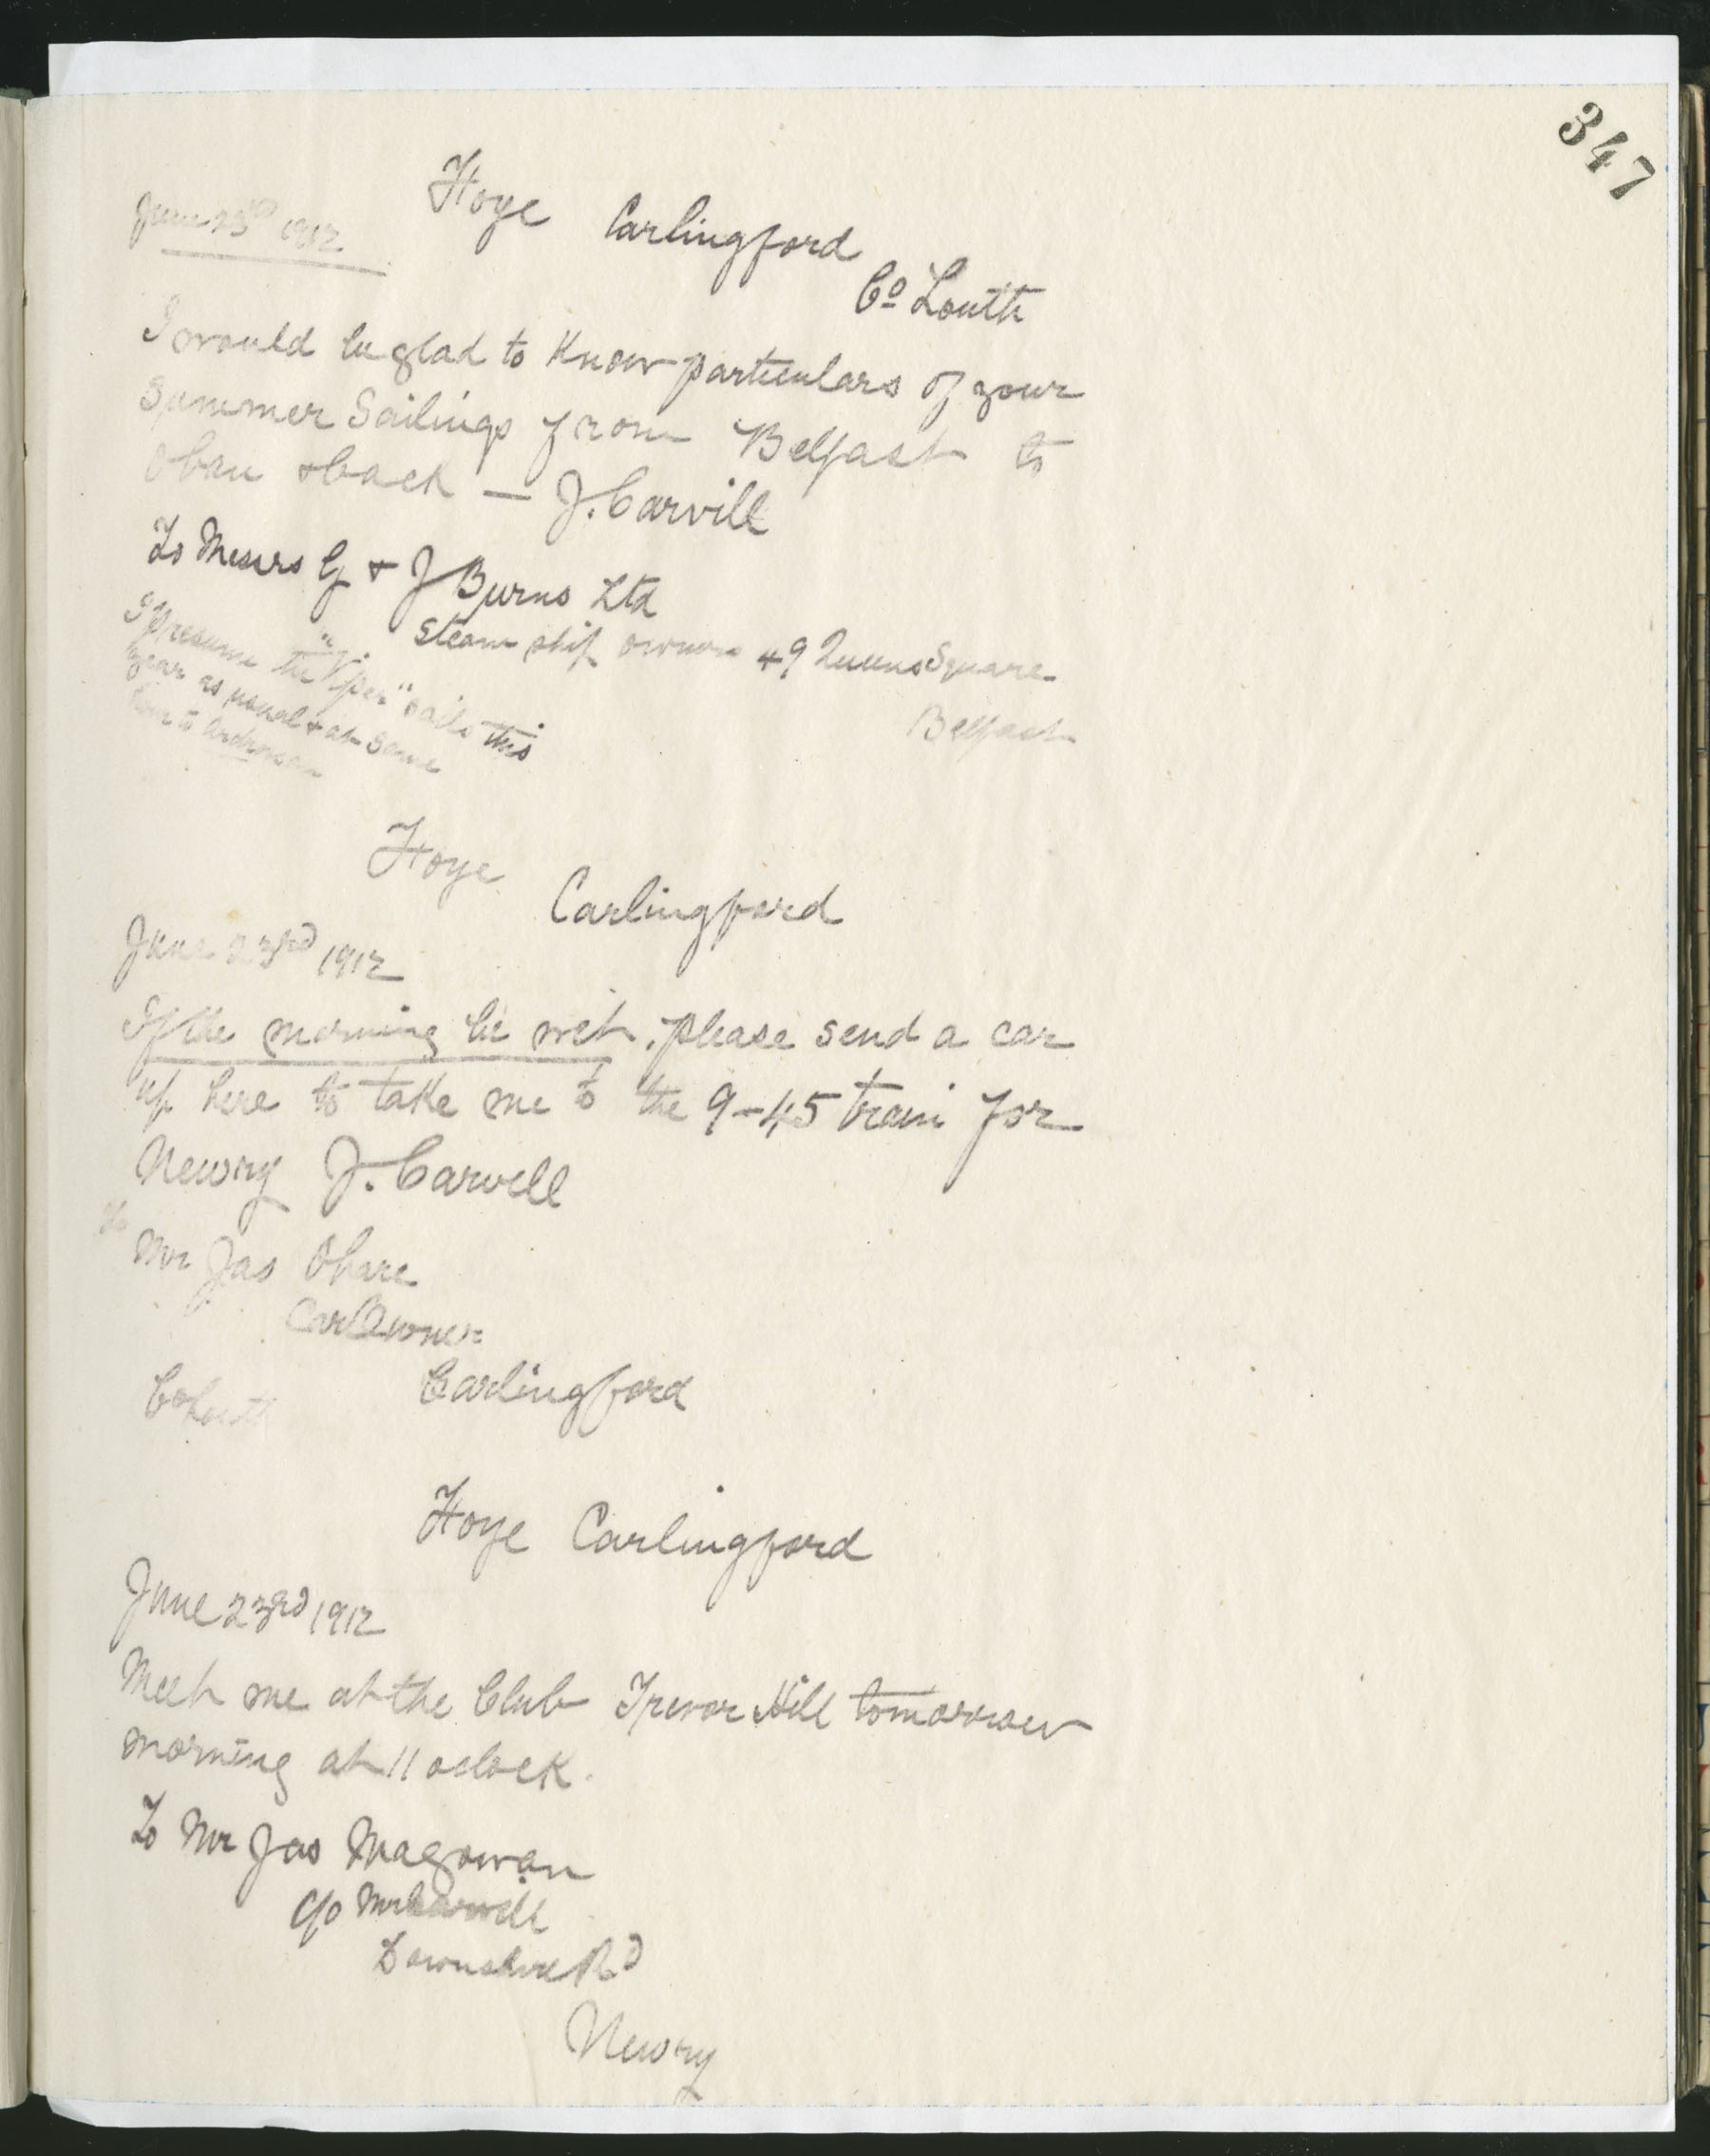 347
Hoye Carlingford
June 23rd 1912
Co Louth
I would be glad to Know particulars of your
Summer Sailings from Belfast to
Oban & back — J. Carvill
To Messrs G & J Burns Ltd
Steam ship owners 49 Queens Square
Belfast
I presume the "Viper" sails this
year as usual & at same
hour to Ardrossan
Hoye
Carlingford
June 23rd 1912
If the morning be wet, please send a car
up here to take me to the 9-45 train for
Newry J. Carvill
To
Mr Jas Ohare
Car Owner
Carlingford
Co Louth
Hoye Carlingford
June 23rd 1912
Meet me at the Club Trevor Hill tomorrow
morning at 11 oclock.
To Mr Jas Magowan
c/o Mr Carvill
Downshire Rd
Newry